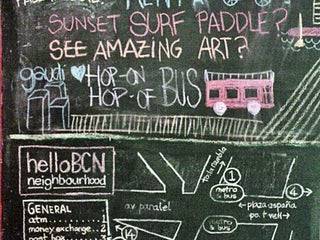 - SUNSET SURF PADDLE?
SEE AMAZING ART?
gaudi HOP-ON
HOP-OF BUS
helloBCN
neighbourhood
to la rambla
1
metro & bus
4
plaza españa
port vell
av paral·lel
metro & bus
14
GENERAL
atm ..... 1
money exchange .. 2
post box .. 3